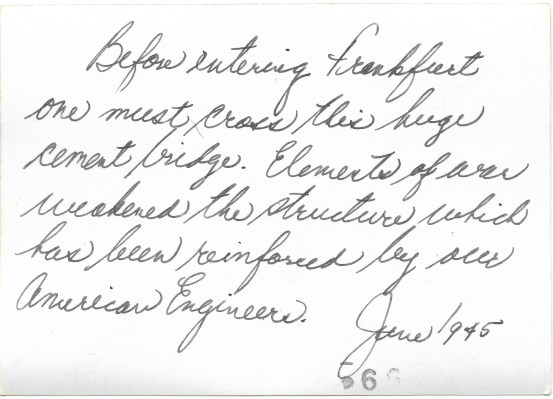 Before entering Frankfurt
one must cross this huge
cement bridge. Elements of war
weakened the structure which
has been reinforced by our
American Engineers.
June 1945
66